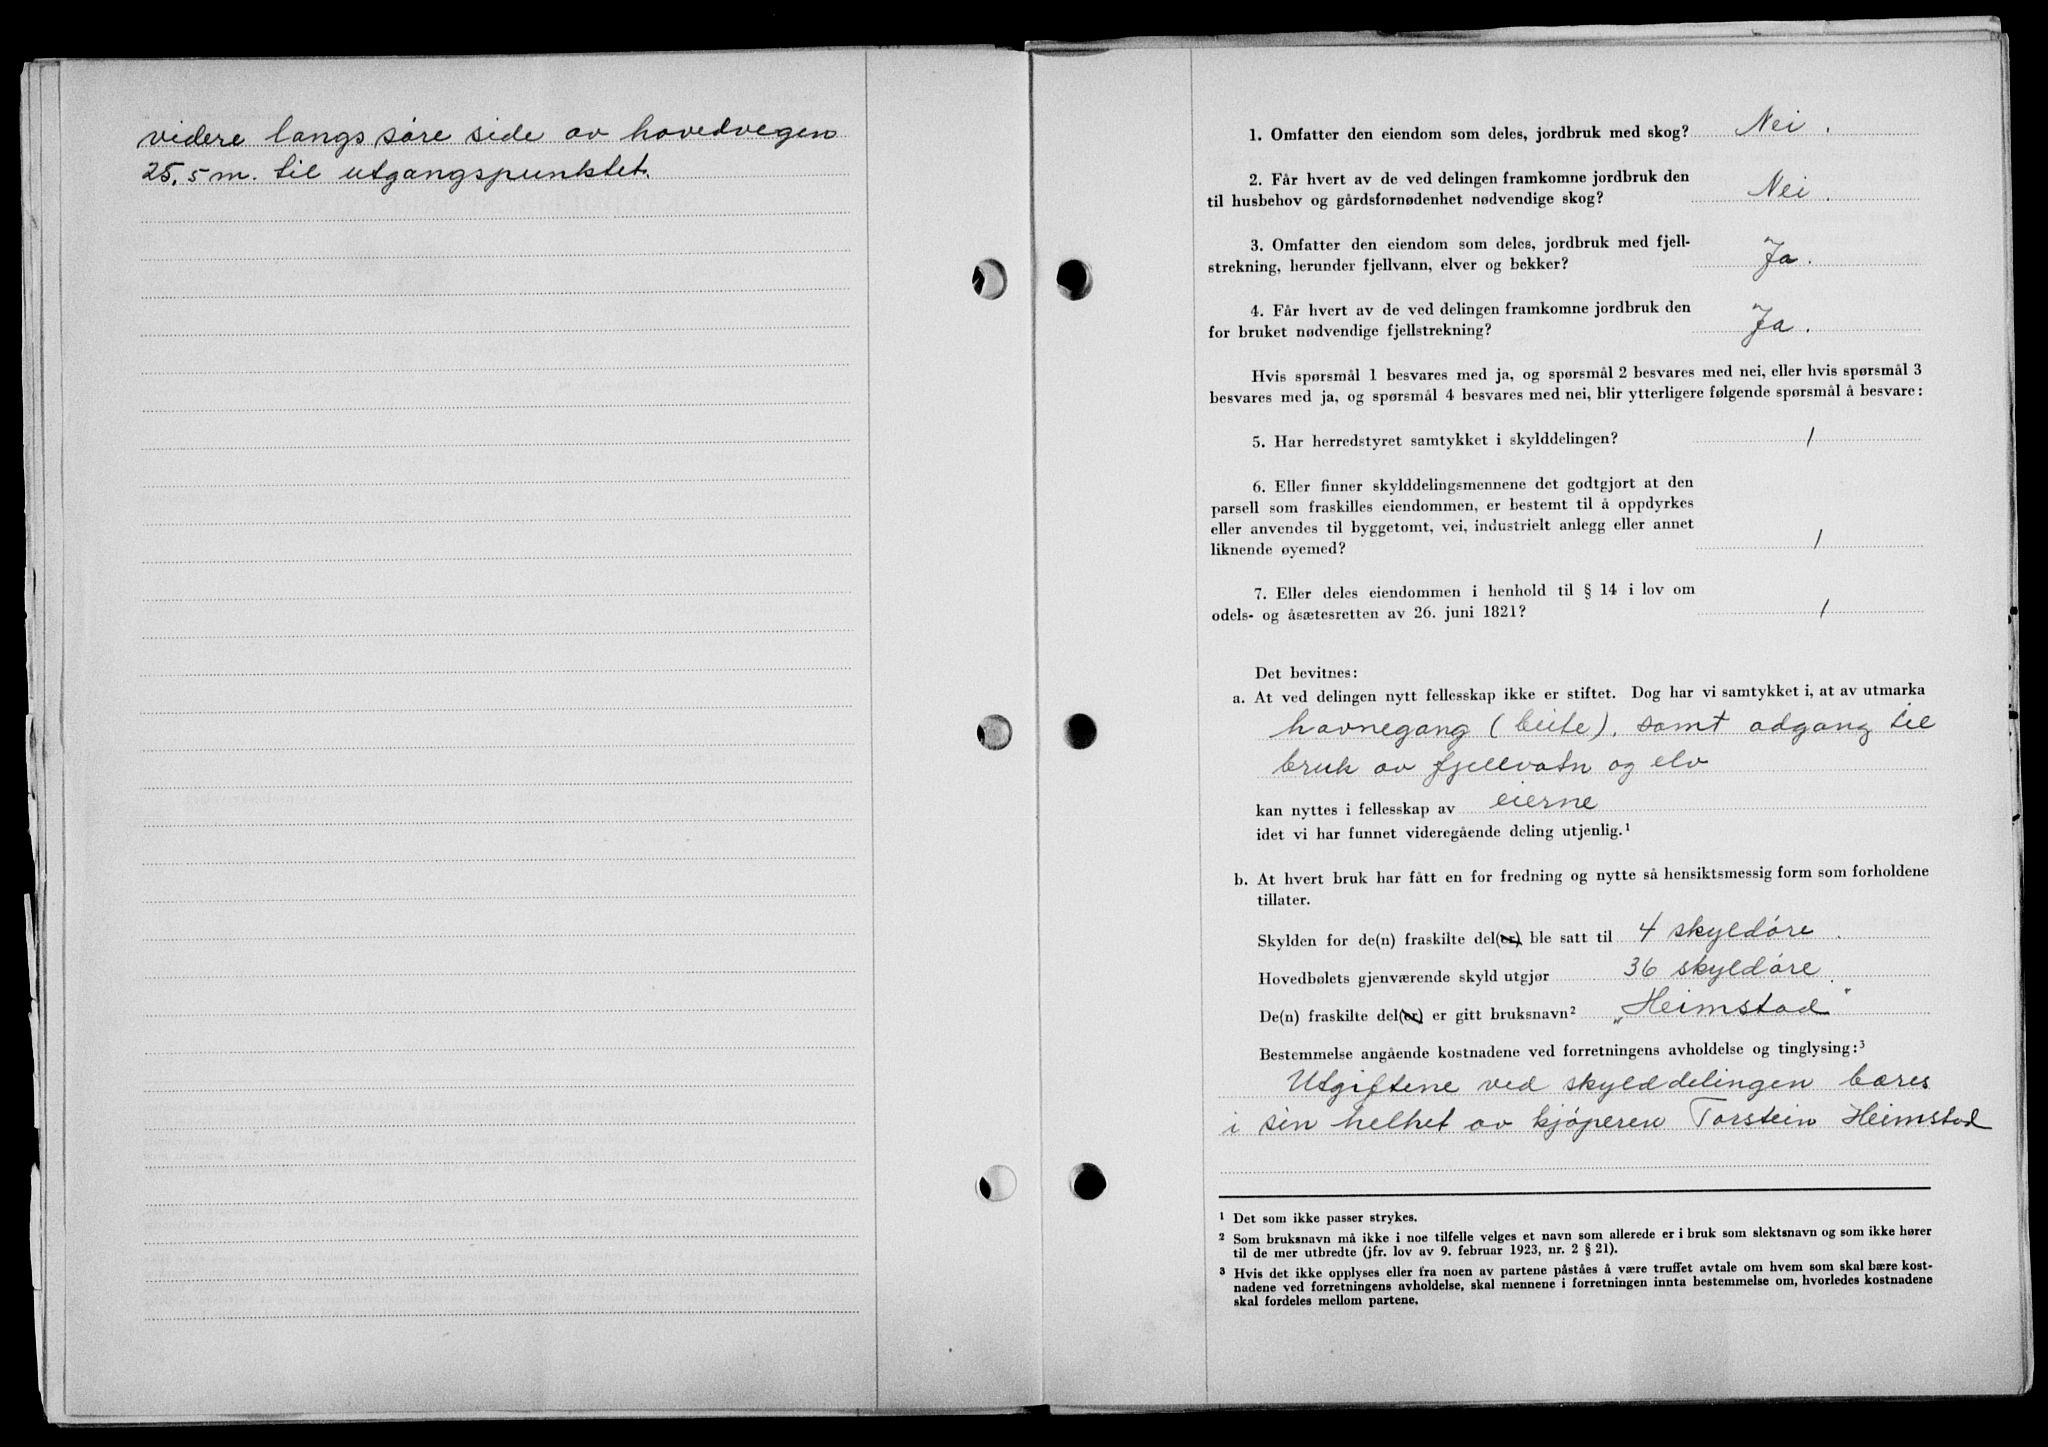 videre langs søre side av hovedvegen
25,5 m. til utgangspunktet.
1. Omfatter den eiendom som deles, jordbruk med skog? Nei.
2. Får hvert av de ved delingen framkomne jordbruk den
til husbehov og gårdsfornødenhet nødvendige skog? Nei.
3. Omfatter den eiendom som deles, jordbruk med fjell-
strekning, herunder fjellvann, elver og bekker? Ja.
4. Får hvert av de ved delingen framkomne jordbruk den
for bruket nødvendige fjellstrekning? Ja.
Hvis spørsmål 1 besvares med ja, og spørsmål 2 besvares med nei, eller hvis spørsmål 3
besvares med ja, og spørsmål 4 besvares med nei, blir ytterligere følgende spørsmål å besvare:
5. Har herredstyret samtykket i skylddelingen? /
6. Eller finner skylddelingsmennene det godtgjort at den
parsell som fraskilles eiendommen, er bestemt til å oppdyrkes
eller anvendes til byggetomt, vei, industrielt anlegg eller annet
liknende øyemed? /
7. Eller deles eiendommen i henhold til § 14 i lov om
odels- og åsætesretten av 26. juni 1821? /
Det bevitnes:
a. At ved delingen nytt fellesskap ikke er stiftet. Dog har vi samtykket i, at av utmarka
havnegang (beite), samt adgang til
bruk av fjellvatn og elv
kan nyttes i fellesskap av eierne
idet vi har funnet videregående deling utjenlig.¹
b. At hvert bruk har fått en for fredning og nytte så hensiktsmessig form som forholdene
tillater.
Skylden for de(n) fraskilte del(er) ble satt til 4 skyldøre.
Hovedbølets gjenværende skyld utgjør 36 skyldøre.
De(n) fraskilte del(er) er gitt bruksnavn² „Heimstad"
Bestemmelse angående kostnadene ved forretningens avholdelse og tinglysing:³
Utgiftene ved skylddelingen bæres
i sin helhet av kjøperen Torstein Heimstad
¹ Det som ikke passer strykes.
² Som bruksnavn må ikke i noe tilfelle velges et navn som allerede er i bruk som slektsnavn og som ikke hører
til de mer utbredte (jfr. lov av 9. februar 1923, nr. 2 § 21).
³ Hvis det ikke opplyses eller fra noen av partene påståes å være truffet avtale om hvem som skal bære kost-
nadene ved forretningens avholdelse, skal mennene i forretningen innta bestemmelse om, hvorledes kostnadene
skal fordeles mellom partene.